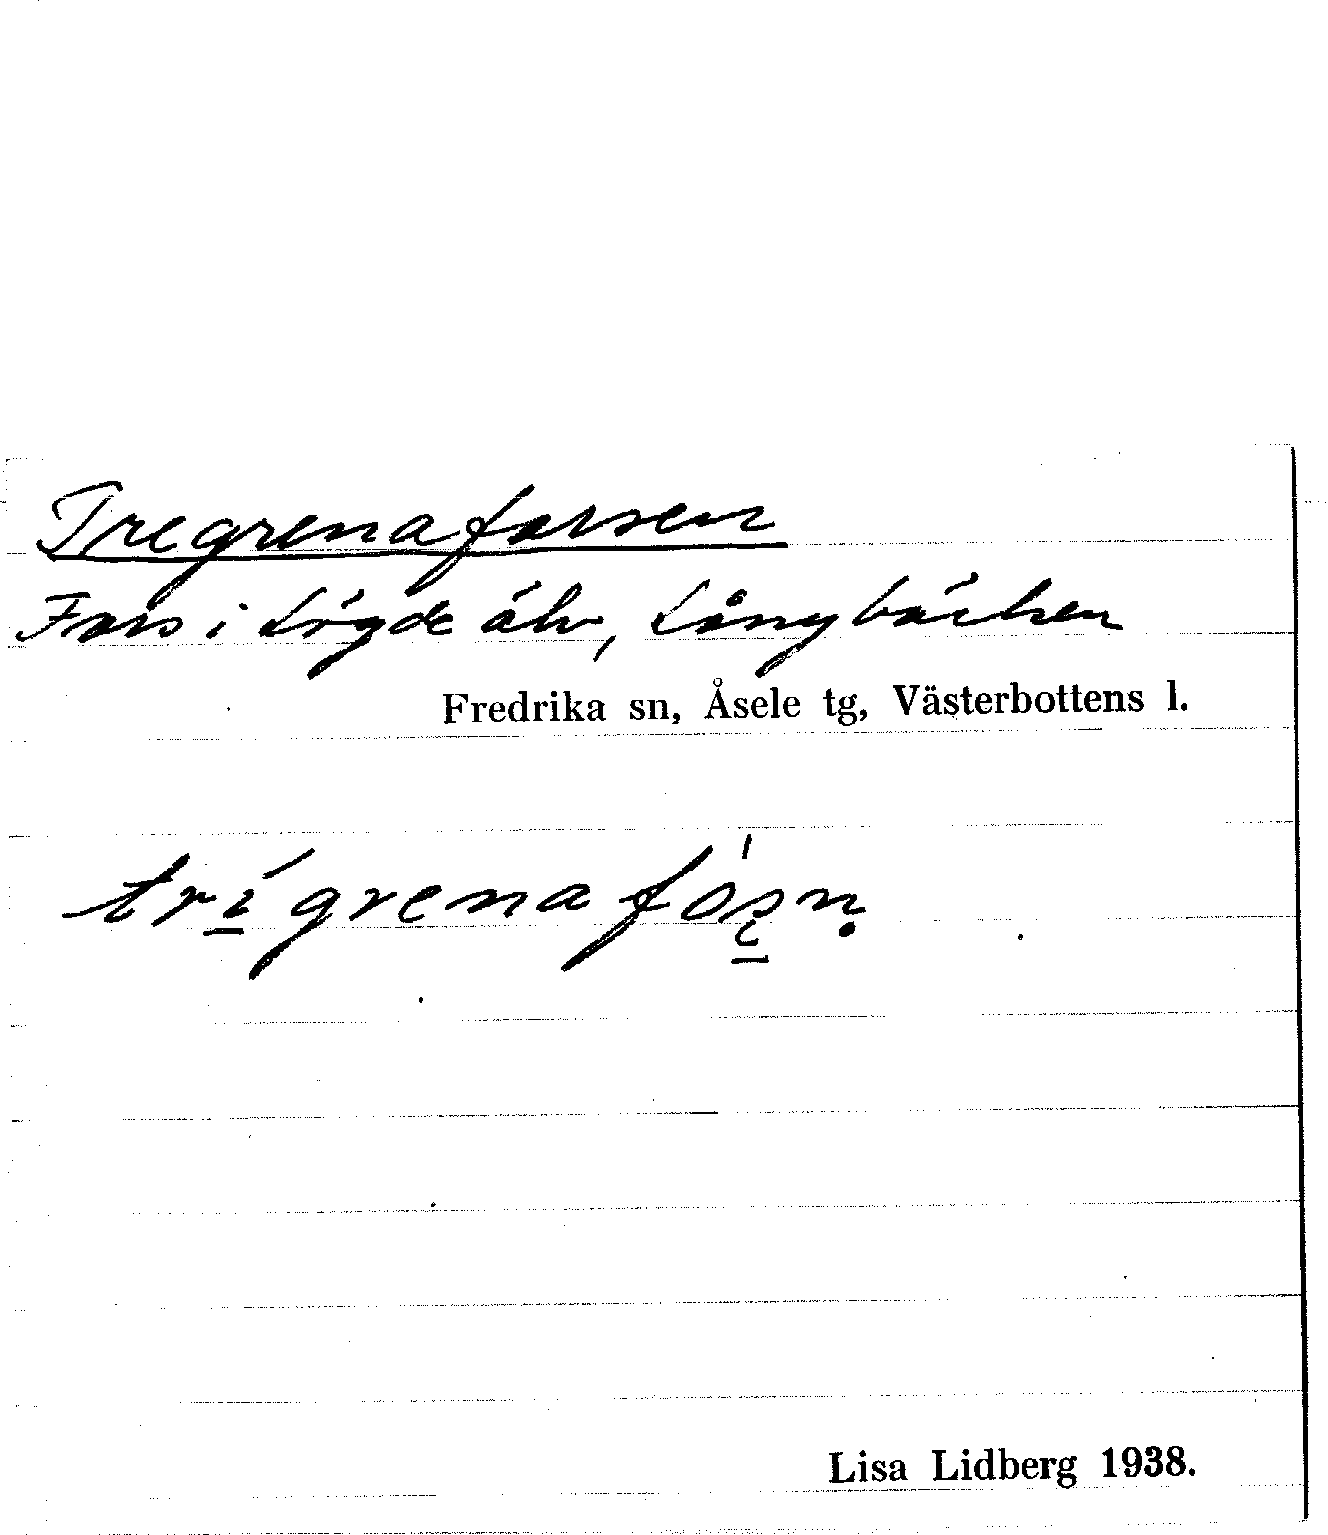 Tregrenaforsen
Fors i Lögde älv, Långbäcken
Fredrika sn, Åsele tg, Västerbottens l.
Lisa Lidberg 1938.